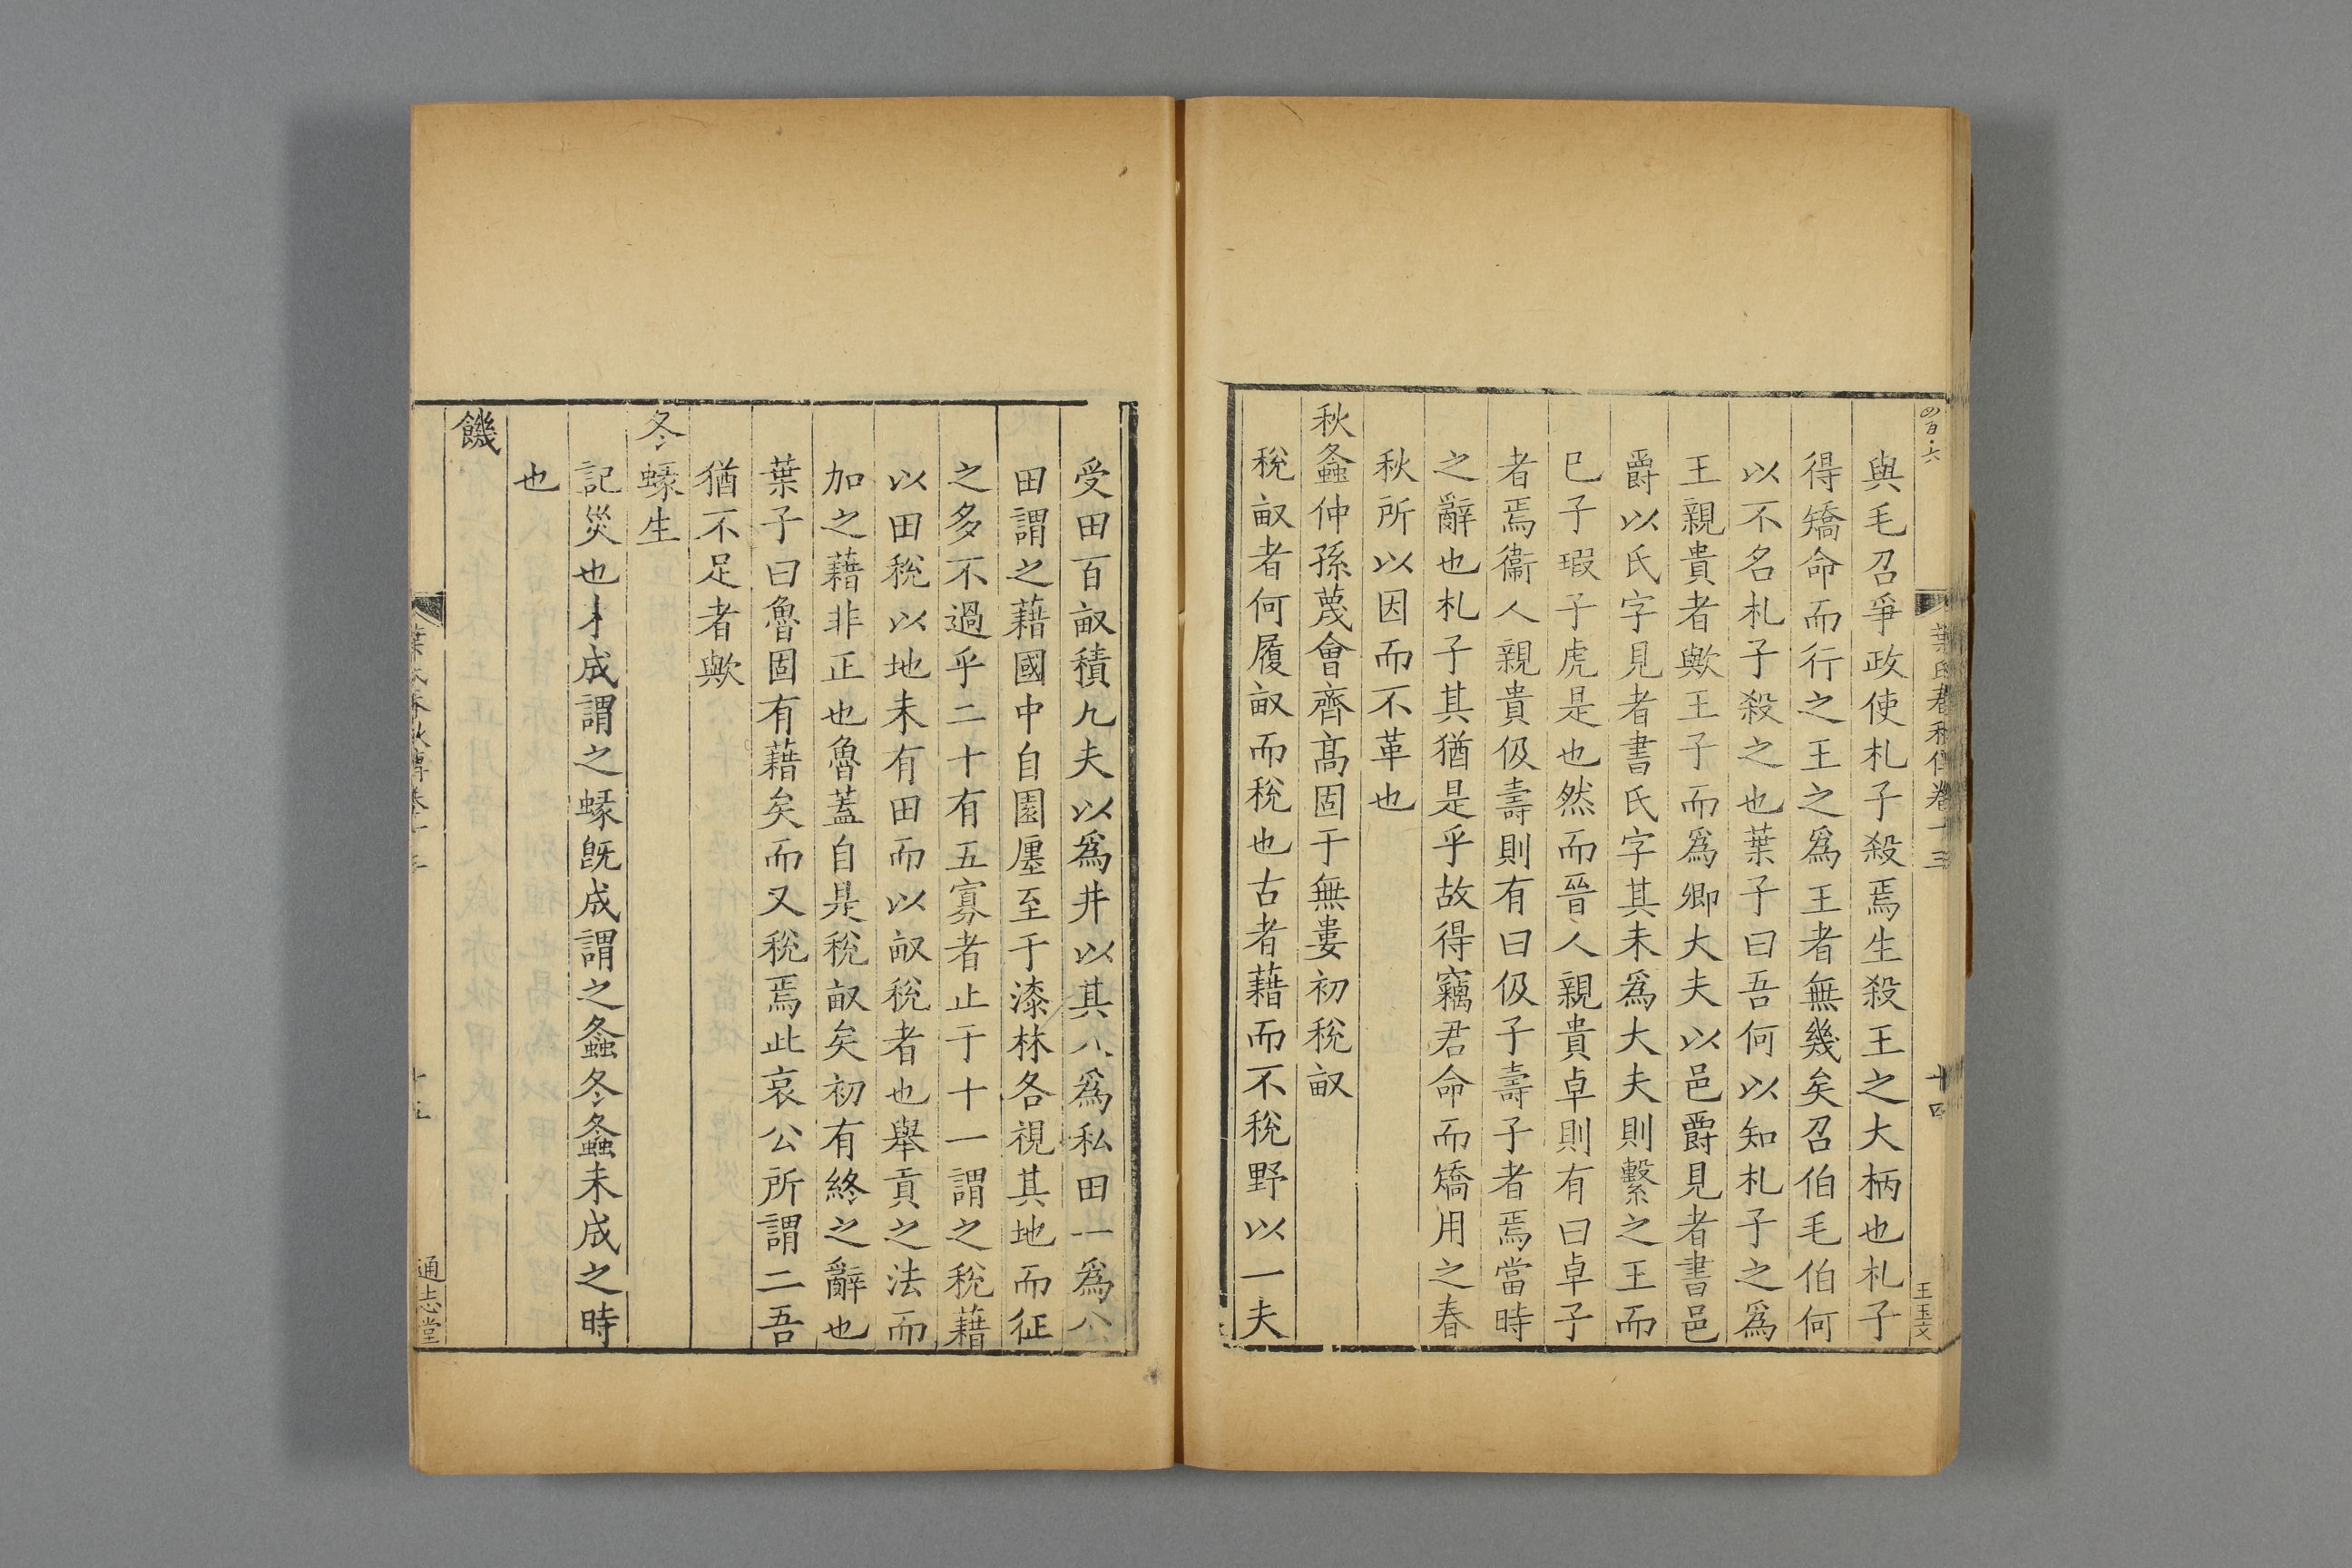 四百六
葉氏春秋傳卷十三
十四
王玉文
與毛召爭政使札子殺焉生殺王之大柄也札子
得矯命而行之王之爲王者無幾矣召伯毛伯何
以不名札子殺之也葉子曰吾何以知札子之爲
王親貴者歟王子而爲卿大夫以邑爵見者書邑
爵以氏字見者書氏字其未爲大夫則繫之王而
巳子瑕子虎是也然而晉人親貴卓則有曰卓子
者焉衞人親貴伋壽則有曰伋子壽子者焉當時
之辭也札子其猶是乎故得竊君命而矯用之春
秋所以因而不革也
秋螽仲孫蔑會齊髙固于無婁初稅畝
稅畝者何履畝而稅也古者藉而不稅野以一夫
受田百畝積九夫以爲井以其八爲私田一爲公
田謂之藉國中自園廛至于漆林各視其地而征
之多不過乎二十有五寡者止于十一謂之稅藉
以田稅以地未有田而以畝稅者也舉貢之法而
加之藉非正也魯蓋自是稅畝矣初有終之辭也
葉子曰魯固有藉矣而又稅焉此哀公所謂二吾
猶不足者歟
冬蝝生
記災也 成謂之蝝旣成謂之螽冬螽未成之時
也
饑
葉氏春秋傳卷十三
十五
通志堂